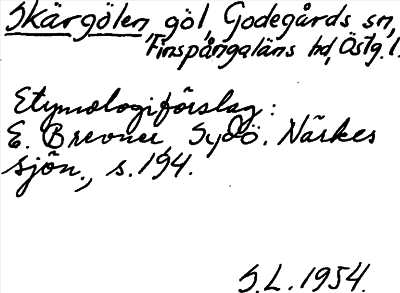 Skärgölen göl, Godegårds sn,
Finspångaläns hd, Östg. l.
Etymologiförslag:
E. Brevner Sydö. Närkes
sjön., s. 194.
S.L. 1954.